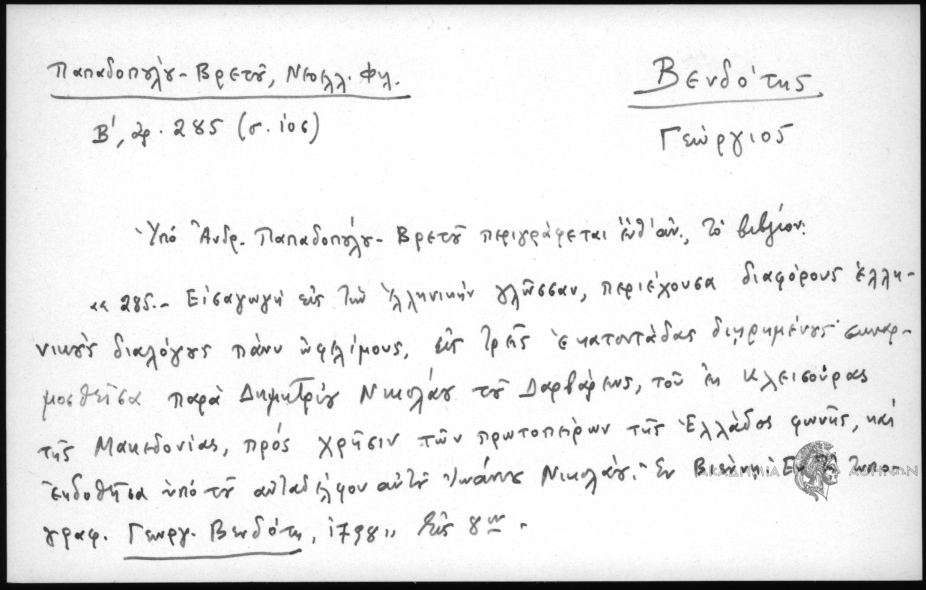 Παπαδοπούλου-Βρετοῦ, Νεοελλ. Φιλ.
Βενδότης
Β', ἀρ. 285 (σ. ιος)
Γεώργιος
Ὑπό Ἀνδρ. Παπαδοπούλου-Βρετοῦ περιγράφεται ἐνθ' ἀν., τό βιβλίον:
«« 285.- Εἰσαγωγή εἰς τήν Ἑλληνικήν γλῶσσαν, περιέχουσα διαφόρους ἑλλη-
νικούς διαλόγους πάνυ ὠφελίμους, εἰς τρεῖς ἑκατοντάδας διῃρημένους· συναρ-
μοσθεῖσα παρά Δημητρίου Νικολάου τοῦ Δαρβάρεως, τοῦ ἐκ Κλεισούρας
τῆς Μακεδονίας, πρός χρῆσιν τῶν πρωτοπείρων τῆς Ἑλλάδος φωνῆς, καί
ἐκδοθεῖσα ὑπό τοῦ αὐταδέλφου αὐτοῦ Ἰωάννου Νικολάου. Ἐν Βιέννῃ. Ἐν τῇ τυπο-
γραφ. Γεωργ. Βενδότῃ, 1798,, Εἰς 8ον.
ΑΚΑΔΗΜΙΑ ΑΘΗΝΩΝ